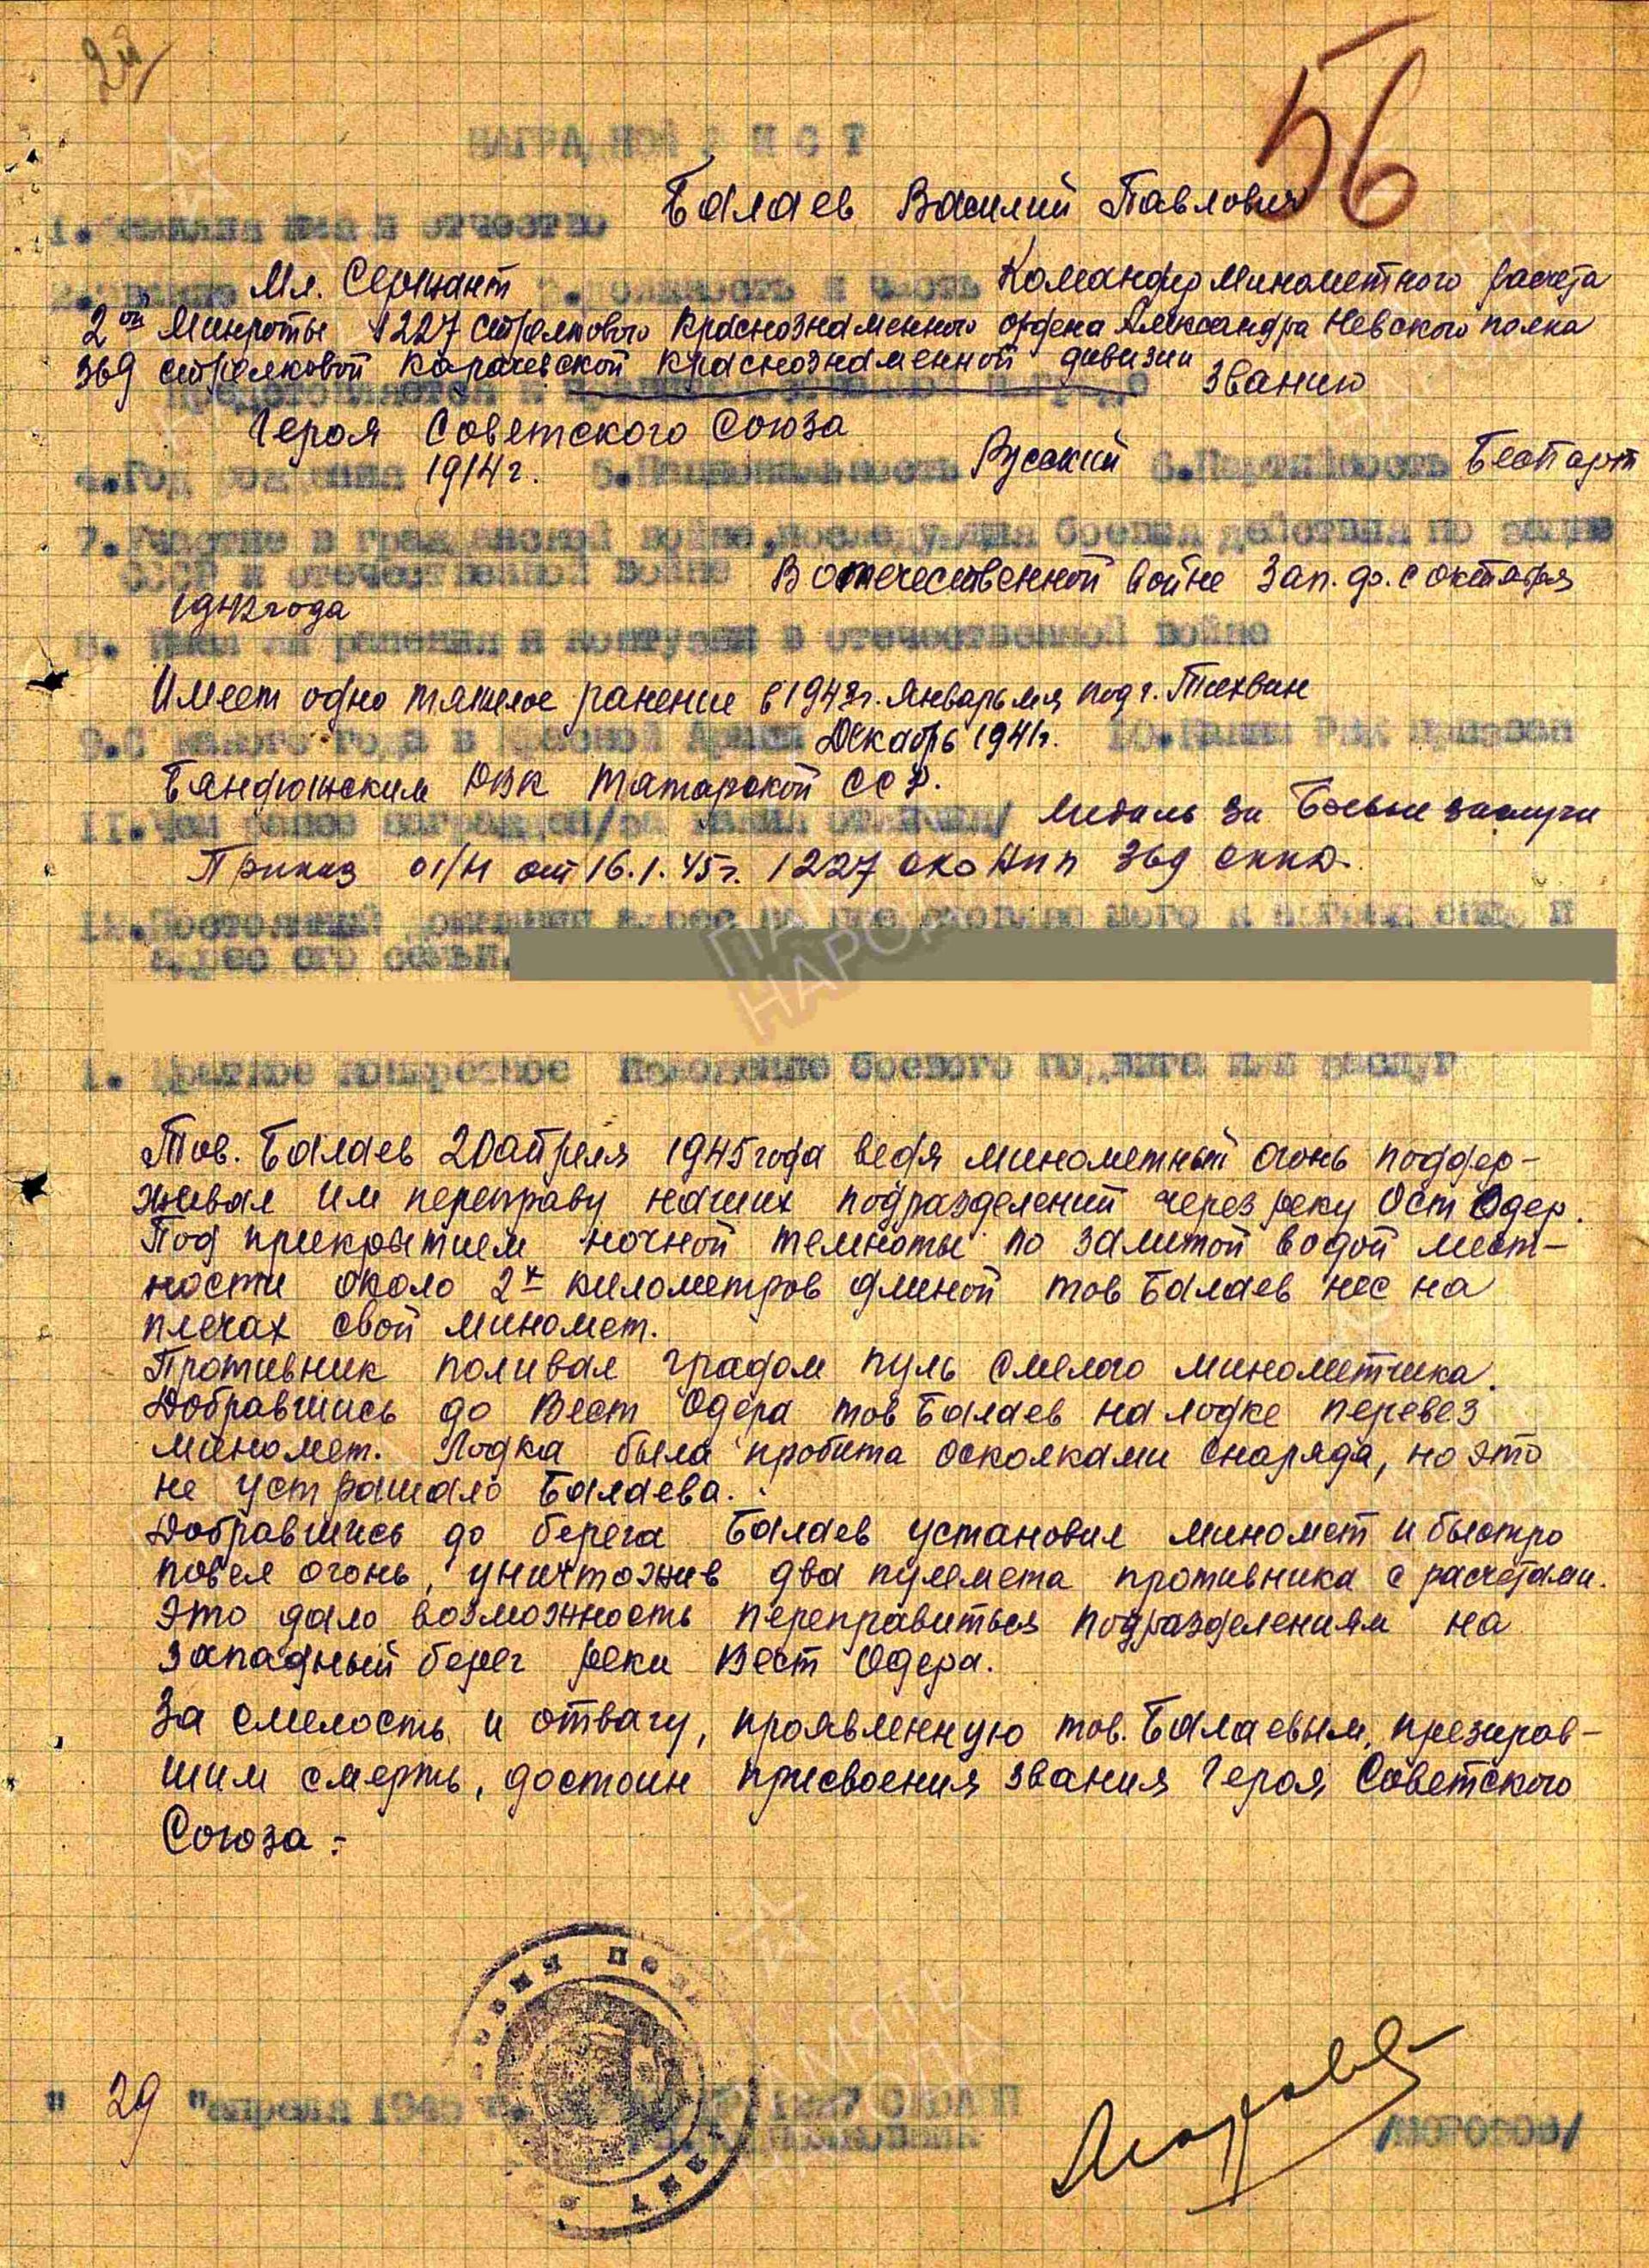 56
НАГРАДНОЙ ЛИСТ
Балаев Василий Павлович
1. Фамилия имя и отчество
Мл. Сержант 3. должность и часть Командир Минометного расчета
2ой Минроты 1227 стрелкового Краснознаменного ордена Александра Невского полка
369 стрелковой Карачевской Краснознаменной дивизии
Представляется к званию
Героя Советского Союза
4. Год рождения 1914г. 5. Национальность Русский 6. Партийность Беспарт
7. Участие в гражданской войне, последующих боевых действиях по защите
СССР и отечественной войне В отечественной войне Зап. фр. с октября
1942 года
8. Имеет ли ранения и контузии в отечественной войне
Имеет одно тяжелое ранение в 1942г. Январь м-я под г. Тихвин
9. С какого года в Красной Армии Декабрь 1941г. 10. Каким РВК призван
Бандюжским РВК Татарской ССР.
11. Чем ранее награжден/за какие отличия/ Медаль за Боевые заслуги
Приказ 01/Н от 16.1.45г. 1227 скоАнп 369 сккд.
12. Постоянный домашний адрес представляемого к награждению и
адрес его семьи.
1. Краткое конкретное изложение боевого подвига или заслуг
Тов. Балаев 20 апреля 1945 года ведя минометный огонь поддер-
живал им переправу наших подразделений через реку Ост Одер.
Под прикрытием ночной темноты по залитой водой мест-
ности около 2х километров длиной тов Балаев нес на
плечах свой миномет.
Противник поливал градом пуль смелого минометчика.
Добравшись до Вест Одера тов Балаев на лодке перевез
миномет. Лодка была пробита осколками снаряда, но это
не устрашало Балаева.
Добравшись до берега Балаев установил миномет и быстро
повел огонь, уничтожив два пулемета противника с расчетами.
Это дало возможность переправиться подразделениям на
западный берег реки Вест Одера.
За смелость и отвагу, проявленную тов. Балаевым, презирав-
шим смерть, достоин присвоения звания Героя Советского
Союза:-
" 29 " апреля 1945 г. 1227 СКОАНП
ПАМЯТЬ НАРОДА